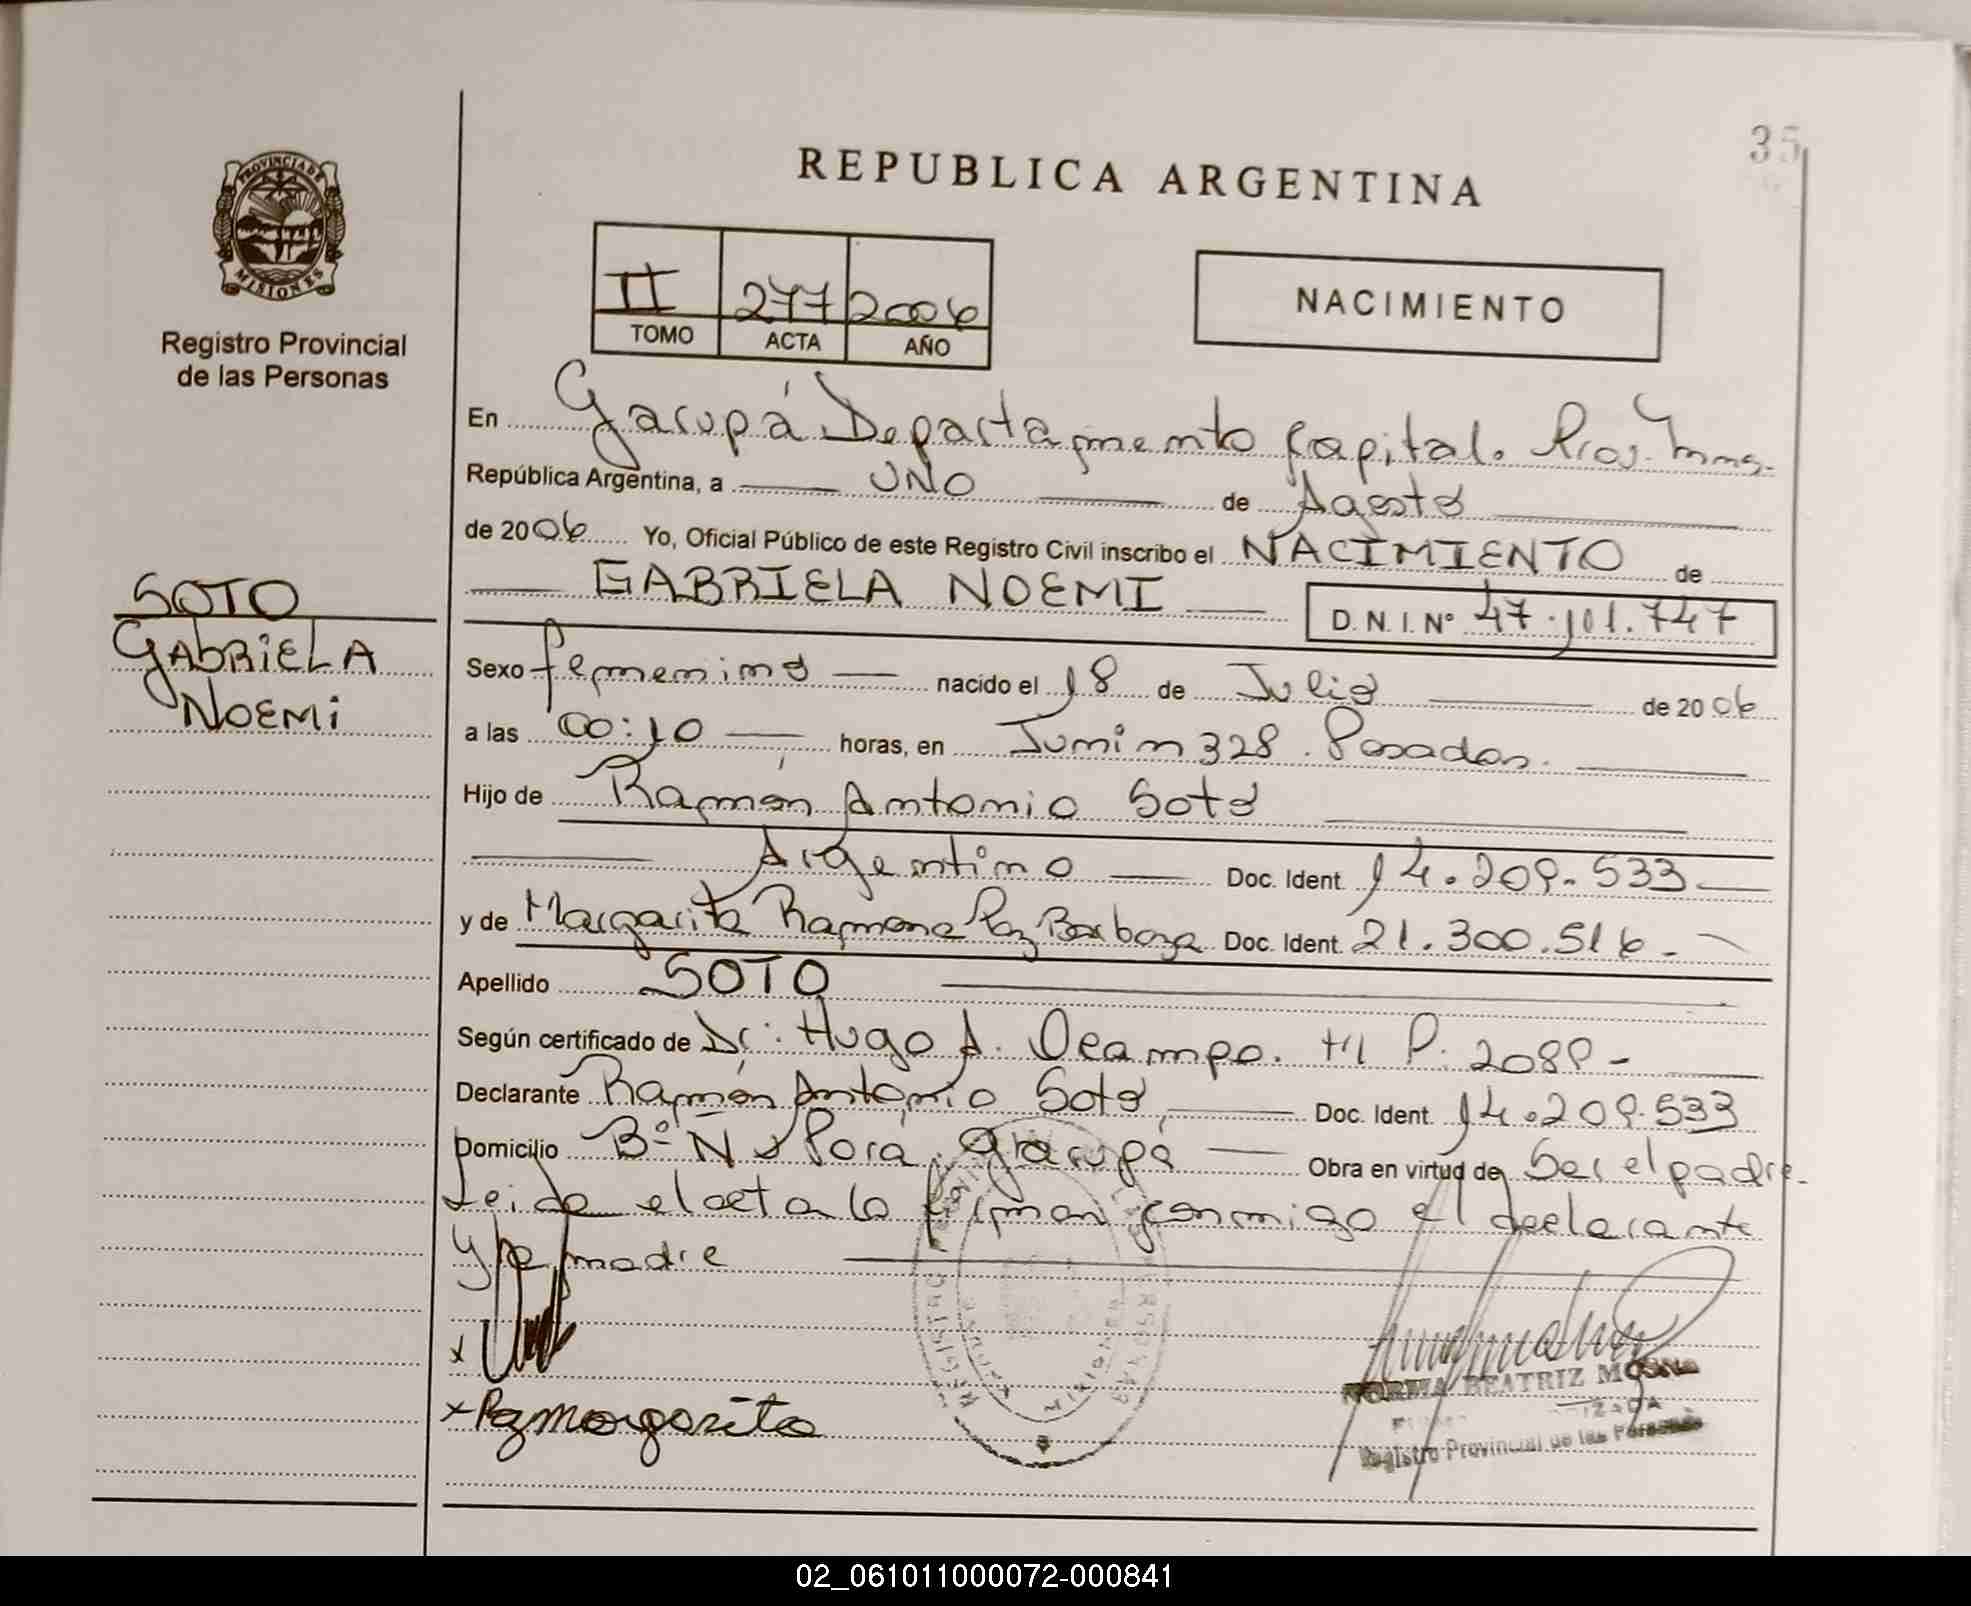 35
REPUBLICA ARGENTINA
PROVINCIA DE
MISIONES
Registro Provincial
de las Personas
II 277 2006
TOMO ACTA AÑO
NACIMIENTO
En Garupá Departamento Capital. Pcia. Mnes.
República Argentina, a UNO de Agosto
de 2006 Yo, Oficial Público de este Registro Civil inscribo el NACIMIENTO de
GABRIELA NOEMI D.N.I. Nº 47.101.747
SOTO
GABRIELA
NOEMI
Sexo femenino nacido el 18 de Julio de 2006
a las 00:10 horas, en Junin 328. Posadas.
Hijo de Ramón Antonio Soto
Argentino Doc. Ident. 14.209.533
y de Margarita Ramona Paz Barboza Doc. Ident. 21.300.516.
Apellido SOTO
Según certificado de Dr: Hugo A. Ocampo. M P. 2089-
Declarante Ramón Antonio Soto Doc. Ident. 14.209.533
Domicilio Bº Ñu Porá. Garupá Obra en virtud de Ser el padre.
Leida el acta la firman conmigo el declarante
y la madre
x
x Paz margarita
NORMA BEATRIZ
Registro Provincial de las Personas
02_061011000072-000841